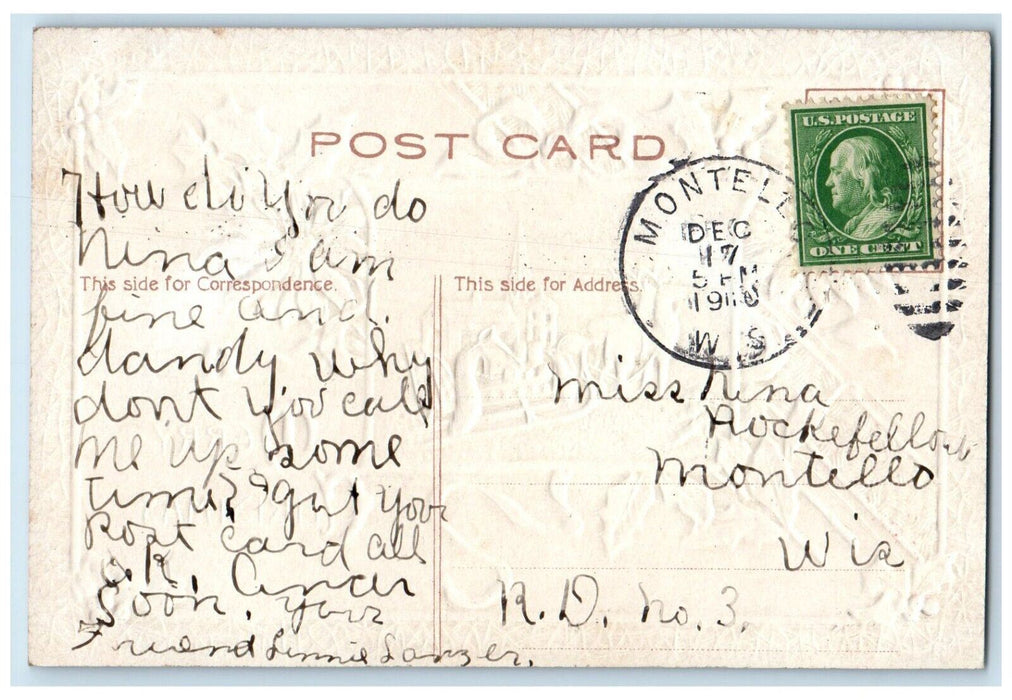 POST CARD
U.S. POSTAGE
ONE CENT
MONTELL
DEC
17
5 PM
1910
WIS
This side for Correspondence.
This side for Address.
How di You do
Nina I am
fine and.
dandy why
dont You call
me up some
time? I gut your
Post card all
o.K. Ancer
Soon, your
Friend Linnie
Miss Nina
Rockefellow
Montello
Wis
R.D. No. 3.